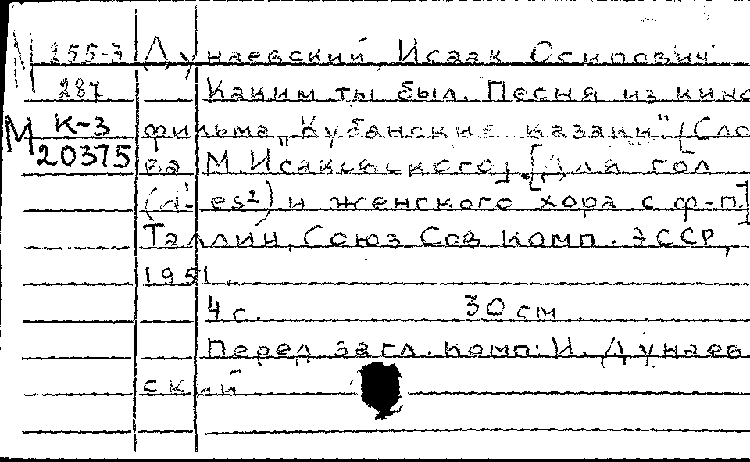 М 255-3 Дунаевский, Исаак Осипович
287 Каким ты был. Песня из кино
М К-3 фильма „Кубанские казаки" (Сло
20375 ва М. Исаковского). [Для гол
(d¹- es²) и женского хора с ф-п]
Таллин, Союз Сов комп. ЭССР,
1951.
4 с. 30 см
Перед загл. комп: И. Дунаев
ский